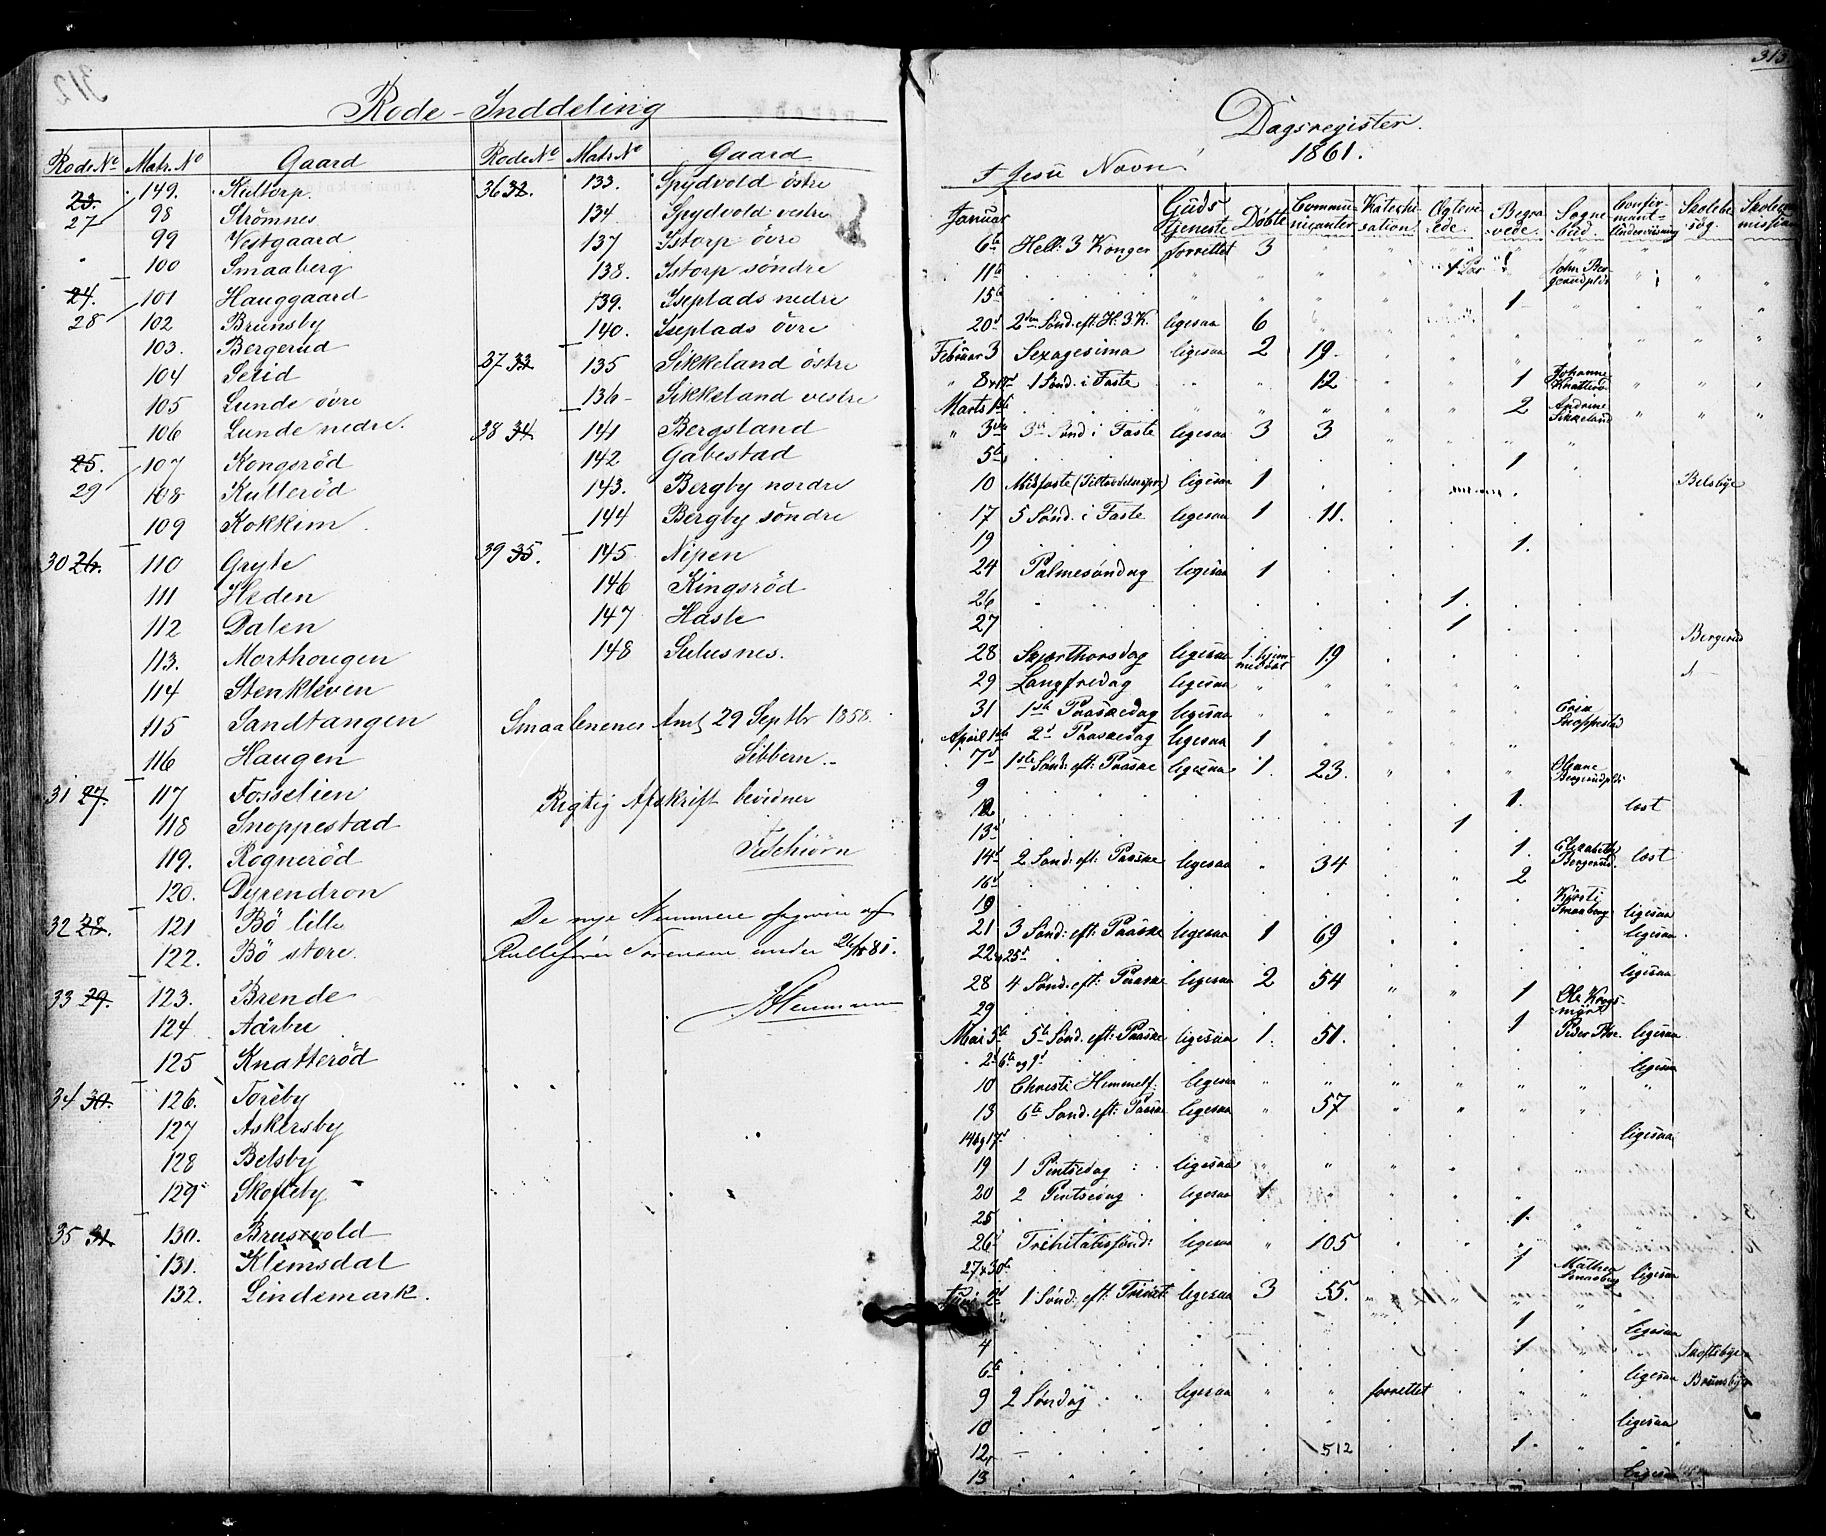 312
Rode-Inddeling
Rode No Matr. No Gaard Rode No Matr. No Gaard
23. 149. Kultorp.
27 98 Strømnes
99 Vestgaard
100 Smaaberg
24. 101 Hauggaard
28 102 Brunsby
103. Bergerud
104 Serid
105 Lunde övre
106 Lunde nedre.
25. 107 Kongsröd
29 108 Kulleröd
109 Kokkim
30 26. 110 Gryte
111 Heden
112 Dalen
113. Morthougen
114 Stenkleven
115 Sandtangen
116 Haugen
31 27. 117 Fosselien
118 Snoppestad
119. Rogneröd
120. Dyrendron
32 28. 121 Bö lille
122. Bö store.
33 29. 123. Brende
124 Aarbu
125 Knatteröd
34 30. 126. Toreby
127 Askersby
128 Belsby
129 Skofteby
35 31. 130. Brusevold
131. Klemsdal
132. Lindemark.
36 32. 133. Spydvold östre
134 Spydvold vestre
137 Istorp övre
138. Istorp söndre
139. Iseplads nedre
140. Iseplads övre
37 33 135 Sikkeland östre
136 Sikkeland vestre
38 34 141 Bergsland
142 Gabestad
143. Bergby nordre
144 Bergby söndre
39 35. 145. Nipen
146 Kingsröd
147 Hasle
148 Sulusnes.
Smaalenenes Amt 29 Septbr 1858.
Sibbern
Rigtig Afskrift bevidner
De nye Nummere opgivne af
under 1881.
313.
Dagsregister
1861.
I Jesu Navn!
Januar Guds tjeneste Döbte Communicanter Katechisation Ægteviede. Begravede. Sognebud. Confirmantundervisning Skolebesög. Skolecommission
6te Hell: 3 Konger forrettet 3
11te 1 Par 1
15te 1
20d 2den Sönd. eft. H. 3 K. ligesaa 6
Februar 3 Sexagesima ligesaa 2 19.
1 Sönd. i Faste 12 1 Johanne Knatteröd
Marts 1ste 2 Andrine Sikkeland
3die 3die Sönd i Faste ligesaa 3 3
5te 1
10 Midfaste ligesaa 1 Belsbye
17 5 Sönd. i Faste ligesaa 1 11.
19 1.
24 Palmesöndag ligesaa 1
26 1.
27 1 Bergerud
28 Skjærthorsdag ligesaa 1. hjemmedöbt 19
29 Langfredag ligesaa
31 1ste Paaskedag ligesaa Snoppestad
April 1ste 2d Paaskedag ligesaa 1
7d 1ste Sönd. eft. Paaske ligesaa 1. 23. Oleane Bergerudpl:
9 1.
12 læst
13d 1
14d 2 Sönd: eft: Paaske ligesaa 34 1. Elisabeth Bergerud. læst
16d 2
19 Kirsti Smaaberg
21 3 Sönd: eft: Paaske ligesaa 1 69 ligesaa
22 & 25d ligesaa
28 4 Sönd. eft: Paaske ligesaa 2 54 1 ligesaa
29 1 Ole Krogsmark
Mai 5te 5te Sönd. eft: Paaske ligesaa 1. 51. ligesaa
2d 6te og 9d ligesaa
10 Christi Himmelf: ligesaa
13 6te Sönd. eft: Paaske ligesaa 57
14 og 17d ligesaa
19 1 Pintsedag ligesaa
20 2 Pintsedag ligesaa 1
25 1.
26d Trinitatissönd: ligesaa 105
27 & 30te 1 Mathea Smaaberg ligesaa
Juni 2d 1 Sönd: eft: Trinit ligesaa 3 55.
1 ligesaa
4 1 Skoftebye
6te ligesaa Brunsbye
9 2 Söndag ligesaa forrettet
10 ligesaa
12 512 1.
13 ligesaa